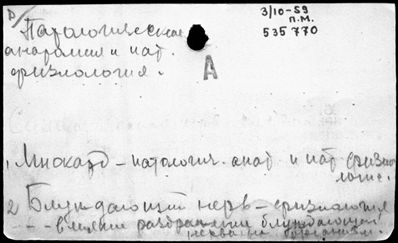 D/
Патологическая
анатомия и пат.
физиология.
3/10-59
п.м.
535 770
А
1. Миокард - патологич. анат. и пат. физио
логия.
2 Блуждающий нерв - физиология
- - влияние раздражения блуждающего
нерва на организм.